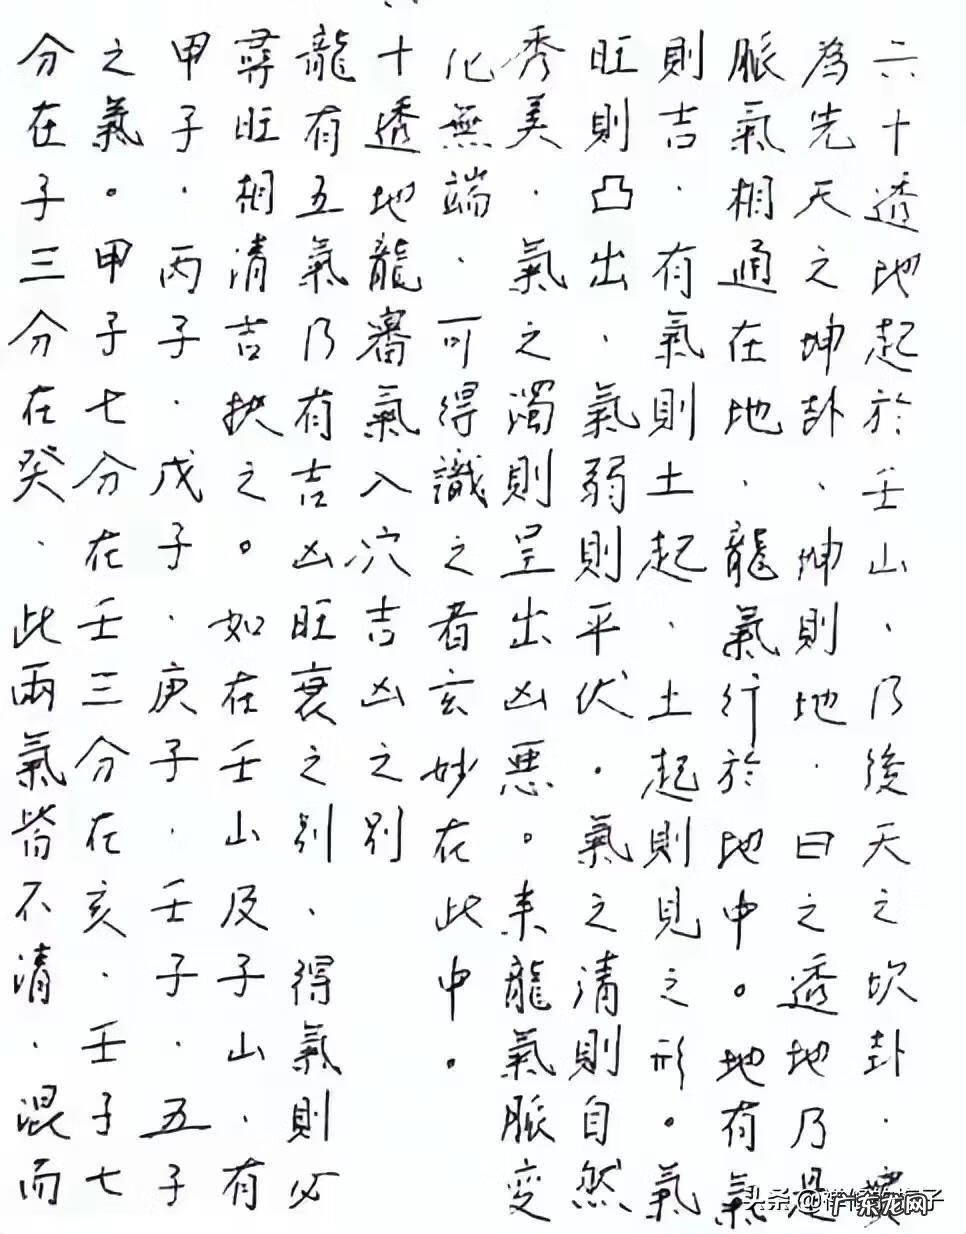 六十透地起於壬山、乃後天之坎卦．實
為先天之坤卦、坤則地．曰之透地乃是
脈氣相通在地．龍氣行於地中。地有氣
則吉．有氣則土起．土起則見之形。氣
旺則凸出．氣弱則平伏．氣之清則自然
秀美．氣之濁則呈出凶惡。来龍氣脈变
化無端．可得識之者玄妙在此中。
十透地龍審氣入穴吉凶之别
龍有五氣乃有吉凶旺衰之别、得氣則必
尋旺相清吉扶之。如在壬山及子山．有
甲子．丙子．戊子．庚子．壬子．五子
之氣。甲子七分在壬三分在亥．壬子七
分在子三分在癸．此兩氣皆不清．混而
头条
广东龙网